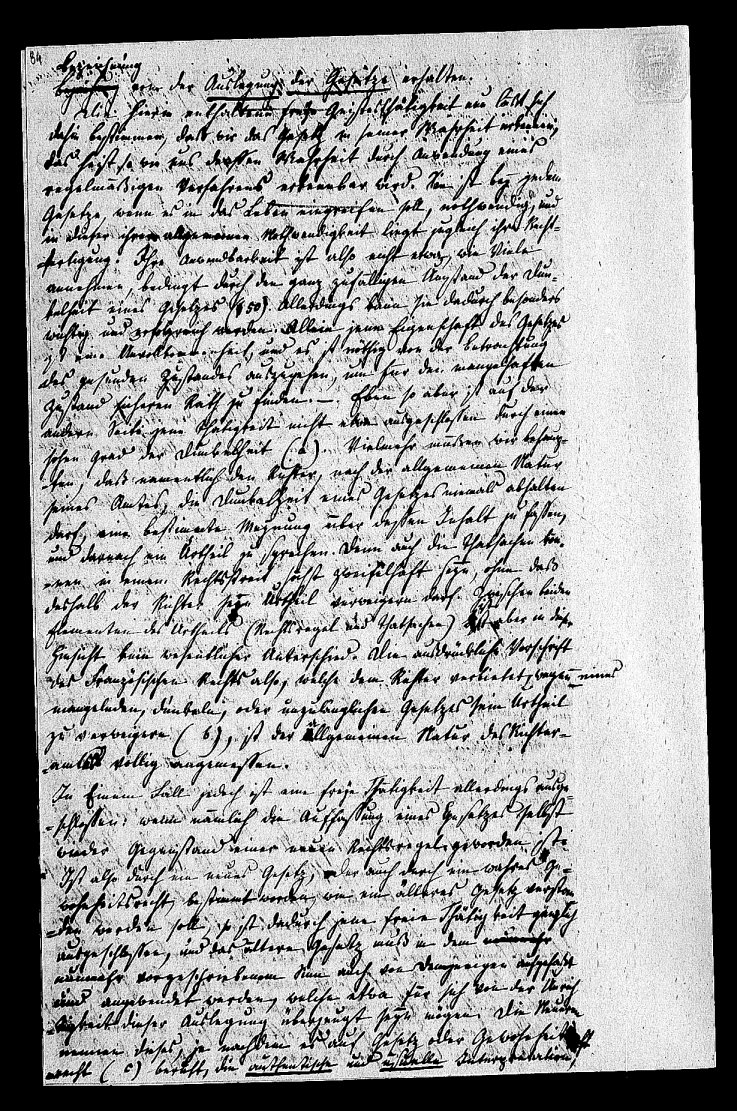 84
Bezeichnung
von der Auslegung der Gesetze erhalten.
Die hierin enthaltene freye Geistesthätigkeit nun läßt sich
dahin bestimmen, daß wir das Gesetz in seiner Wahrheit erkennen,
das heißt so wie uns dessen Wahrheit durch Anwendung eines
regelmäßigen Verfahrens erkennbar wird. Sie ist bey jedem
Gesetze, wenn es in das Leben eingreifen soll, nothwendig, und
in dieser ihrer allgemeinen Nothwendigkeit liegt zugleich ihre Recht-
fertigung. Ihre Anwendbarkeit ist also nicht etwa, wie Viele
annehmen, bedingt durch den ganz zufälligen Umstand der Dun-
kelheit eines Gesetzes (§ 50). Allerdings kann sie dadurch besonders
wichtig und erfolgreich werden. Allein jene Eigenschaft des Gesetzes
ist eine Unvollkommenheit, und es ist nöthig von der Betrachtung
des gesunden Zustandes auszugehen, um für den mangelhaften
Zustand sicheren Rath zu finden. — Eben so aber ist auf der
andern Seite jene Thätigkeit nicht etwa ausgeschlossen durch einen
hohen Grad der Dunkelheit (a). Vielmehr müssen wir behaup-
ten, daß namentlich den Richter, nach der allgemeinen Natur
seines Amtes, die Dunkelheit eines Gesetzes niemals abhalten
darf, eine bestimmte Meynung über dessen Inhalt zu fassen,
und darnach ein Urtheil zu sprechen. Denn auch die Thatsachen kön-
nen in einem Rechtsstreit höchst zweifelhaft seyn, ohne daß
deshalb der Richter sein Urtheil verweigern darf. Zwischen beiden
Elementen des Urtheils (Rechtsregel und Thatsachen) ist aber in dieser
Hinsicht kein wesentlicher Unterschied. Die ausdrückliche Vorschrift
des Französischen Rechts also, welche dem Richter verbietet, wegen eines
mangelnden, dunkeln, oder unzulänglichen Gesetzes sein Urtheil
zu verweigern (b), ist der allgemeinen Natur des Richter-
amts völlig angemessen.
In Einem Fall jedoch ist eine freye Thätigkeit allerdings ausge-
schlossen: wenn nämlich die Auffassung eines Gesetzes selbst
wieder Gegenstand einer neuen Rechtsregel geworden ist.
Ist also durch ein neues Gesetz, oder auch durch ein wahres Ge-
wohnheitsrecht, bestimmt worden, wie ein älteres Gesetz verstan-
den werden soll, so ist dadurch jene freie Thätigkeit gänzlich
ausgeschlossen, und das ältere Gesetz muß in dem
nunmehr vorgeschriebenem Sinn auch von Demjenigen aufgefaßt
und angewendet werden, welche etwa für sich von der Unrich-
tigkeit dieser Auslegung überzeugt seyn mögen. Die Neuern
nennen dieses, je nachdem es auf Gesetz oder Gewohnheits-
recht (c) beruht, die authentische und usuelle Interpretation,